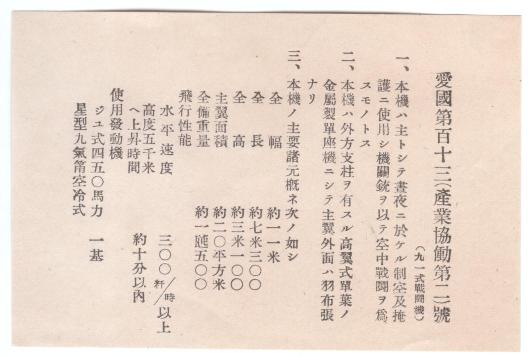 愛國第百十三(產業協働第二)號
(九一式戰鬪機)
一、本機ハ主トシテ晝夜ニ於ケル制空及掩
護ニ使用シ機關銃ヲ以テ空中戰鬪ヲ爲
スモノトス
二、本機ハ外方支柱ヲ有スル高翼式單葉ノ
金屬製單座機ニシテ主翼外面ハ羽布張
ナリ
三、本機ノ主要諸元概ネ次ノ如シ
全幅 約一一米
全長 約七米三〇〇
全高 約三米一〇〇
主翼面積 約二〇平方米
全備重量 約一瓲五〇〇
飛行性能
水平速度 三〇〇粁/時以上
高度五千米
ヘ上昇時間 約十分以內
使用發動機
ジユ式四五〇馬力 一基
星型九氣筩空冷式